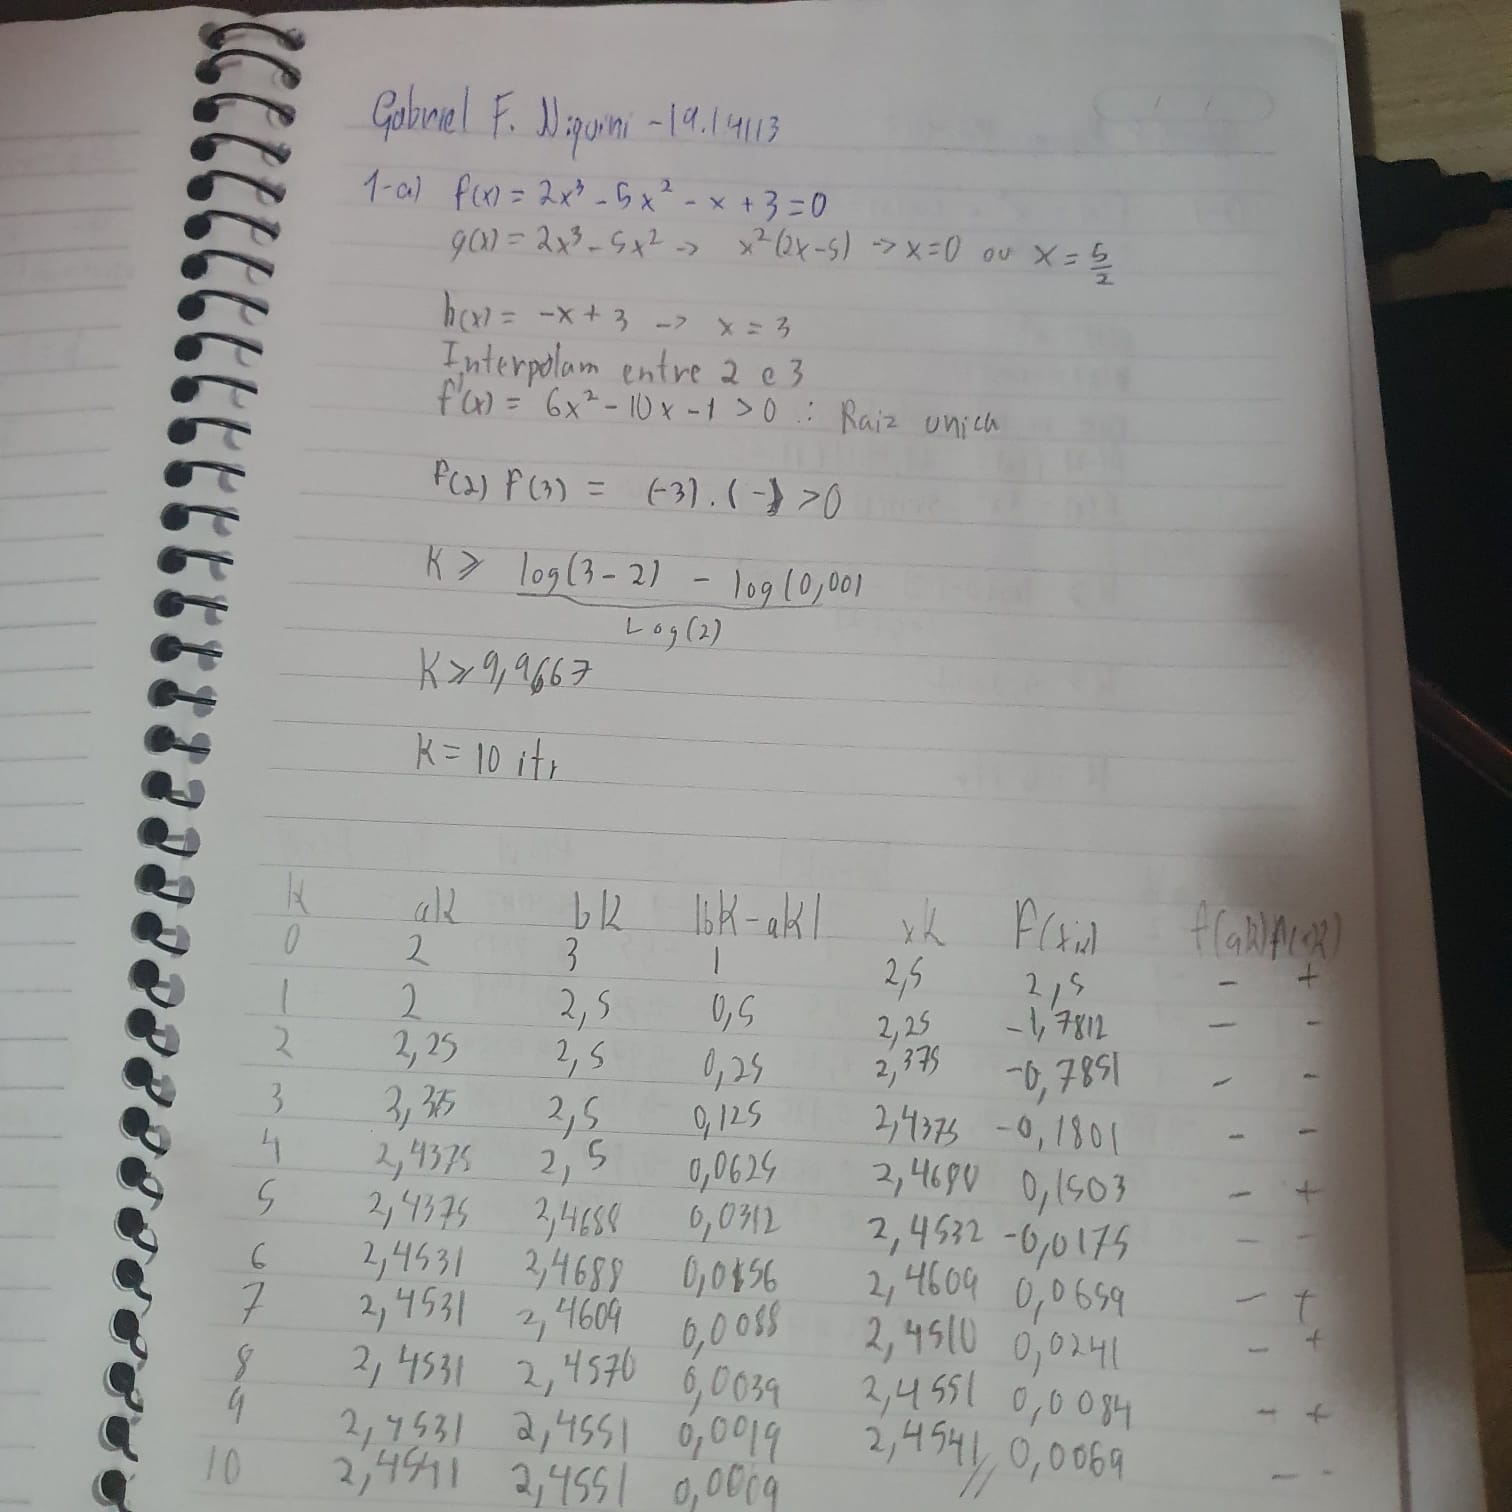 Gabriel F. Niquini - 19.1.4113
1-a) f(x) = 2x³ - 5x² - x + 3 = 0
g(x) = 2x³ - 5x² -> x²(2x-5) -> x=0 ou x = 5/2
h(x) = -x + 3 -> x = 3
Interpolam entre 2 e 3
f'(x) = 6x² - 10x - 1 > 0 ∴ Raiz unica
f(2) f(3) = (-3) . (-) > 0
K ≥ log(3-2) - log(0,001
Log(2)
K ≥ 9,9667
K = 10 itr
K ak bk |bk-ak| xk F(xk) f(ak)f(xk)
0 2 3 1 2,5 2,5 - +
1 2 2,5 0,5 2,25 -1,7812 - -
2 2,25 2,5 0,25 2,375 -0,7851 - -
3 2,375 2,5 0,125 2,4375 -0,1801 - -
4 2,4375 2,5 0,0625 2,4680 0,1503 - +
5 2,4375 2,4688 0,0312 2,4532 -0,0175 - -
6 2,4531 2,4688 0,0156 2,4609 0,0659 - +
7 2,4531 2,4609 0,0088 2,4510 0,0241 - +
8 2,4531 2,4570 0,0039 2,4551 0,0084 - +
9 2,4531 2,4551 0,0019 2,4541 0,0069 - -
10 2,4541 2,4551 0,0009